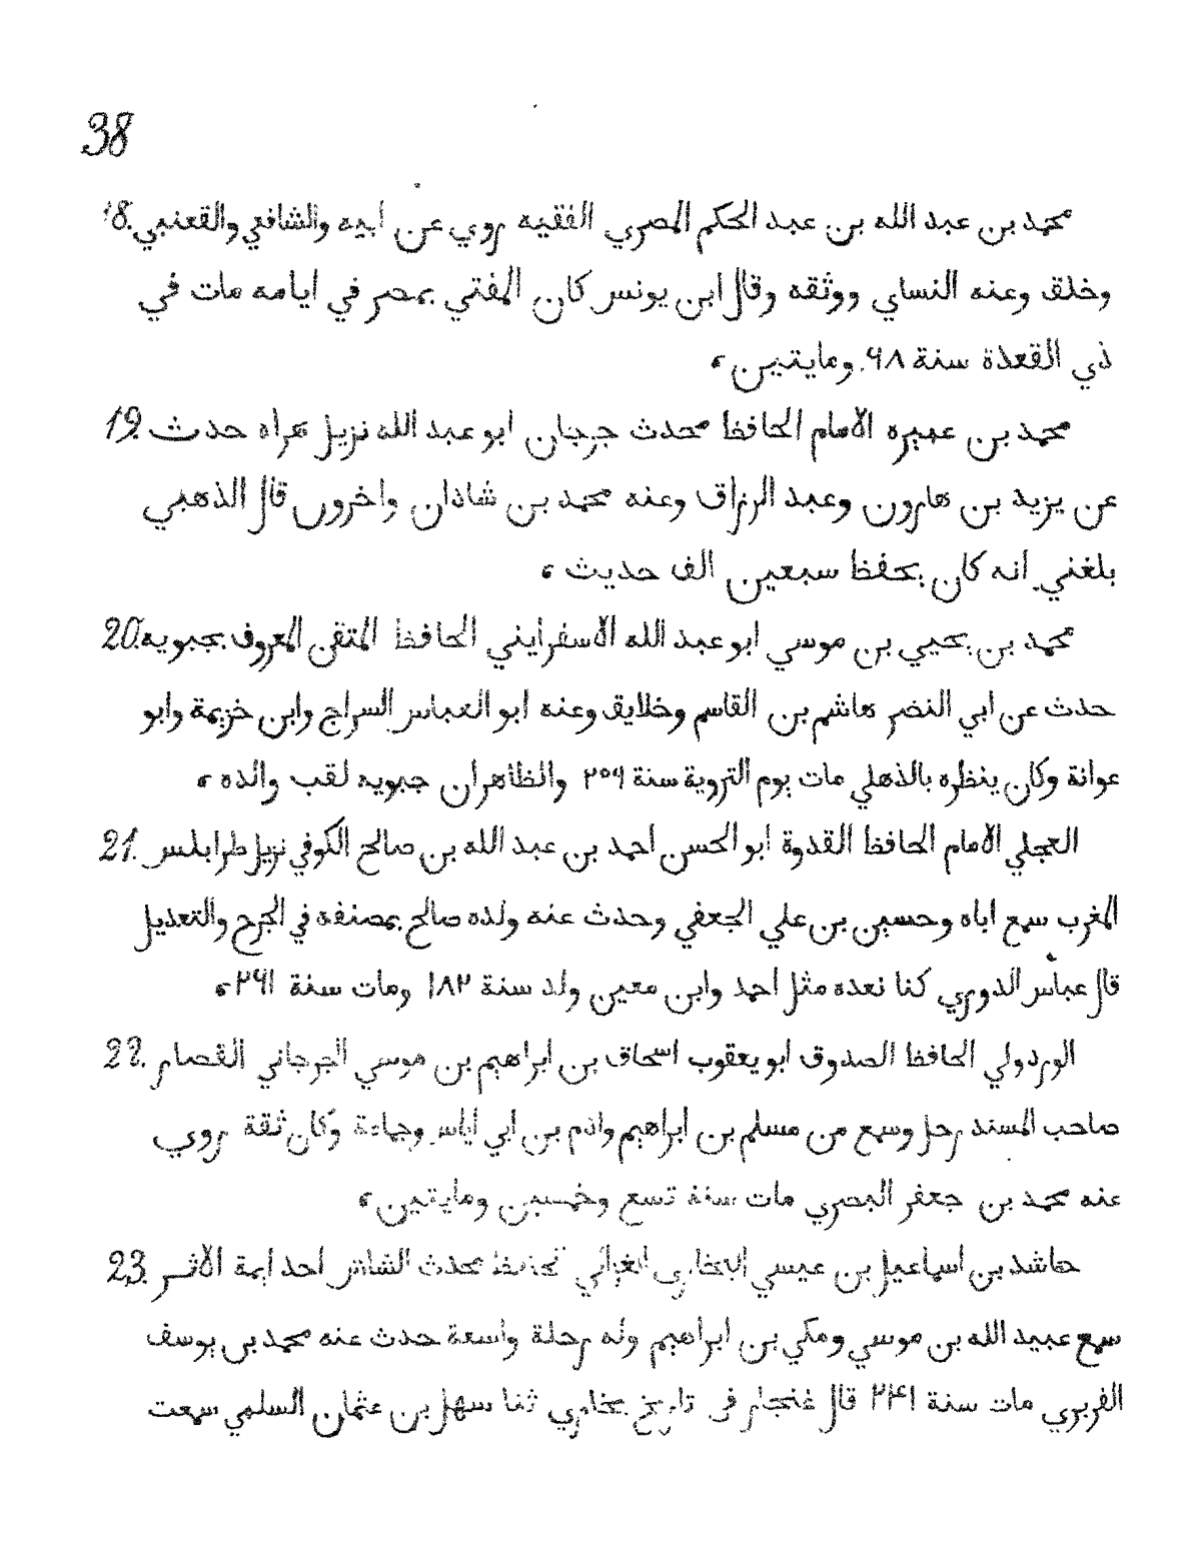 38
18. محمد بن عبد الله بن عبد الحكم المصري الفقيه روي عن ابيه والشافعي والقعنبي
وخلق وعنه النساي ووثقه وقال ابن يونس كان المفتي بمصر في ايامه مات في
ذي القعدة سنة ٩٨ ومايتين ،
19. محمد بن عميره الامام الحافظ محدث جرجان ابو عبد الله نزيل هراه حدث
عن يزيد بن هارون وعبد الرزاق وعنه محمد بن شاذان واخرون قال الذهبي
بلغني انه كان يحفظ سبعين الف حديث ،
20. محمد بن يحيي بن موسي ابو عبد الله الاسفرايني الحافظ المتقن المعروف بحبويه
حدث عن ابي النضر هاشم بن القاسم وخلايق وعنه ابو العباس السراج وابن خزيمة وابو
عوانة وكان ينظره بالذهلي مات يوم التروية سنة ٢٥٩ والظاهر ان حبويه لقب والده ،
21. العجلي الامام الحافظ القدوة ابو الحسن احمد بن عبد الله بن صالح الكوفي نزيل طرابلس
المغرب سمع اباه وحسين بن علي الجعفي وحدث عنه ولده صالح بمصنفه في الجرح والتعديل
قال عباس الدوري كنا نعده مثل احمد وابن معين ولد سنة ١٨٢ ومات سنة ٢٩١ ،
22. الوردولي الحافظ الصدوق ابو يعقوب اسحاق بن ابراهيم بن موسي الجرجاني القصار
صاحب المسند رحل وسمع من مسلم بن ابراهيم وادم بن ابي اياس وجماعة وكان ثقة روي
عنه محمد بن جعفر البصري مات سنة تسع وخمسين ومايتين ،
23. حاشد بن اسماعيل بن عيسي البخاري الغزالي الحافظ محدث الشاش احد ايمة الاثر
سمع عبيد الله بن موسي ومكي بن ابراهيم وله رحلة واسعة حدث عنه محمد بن يوسف
الفربري مات سنة ٢٤١ قال غنجار في تاريخ بخاري ثنا سهل بن عثمان السلمي سمعت